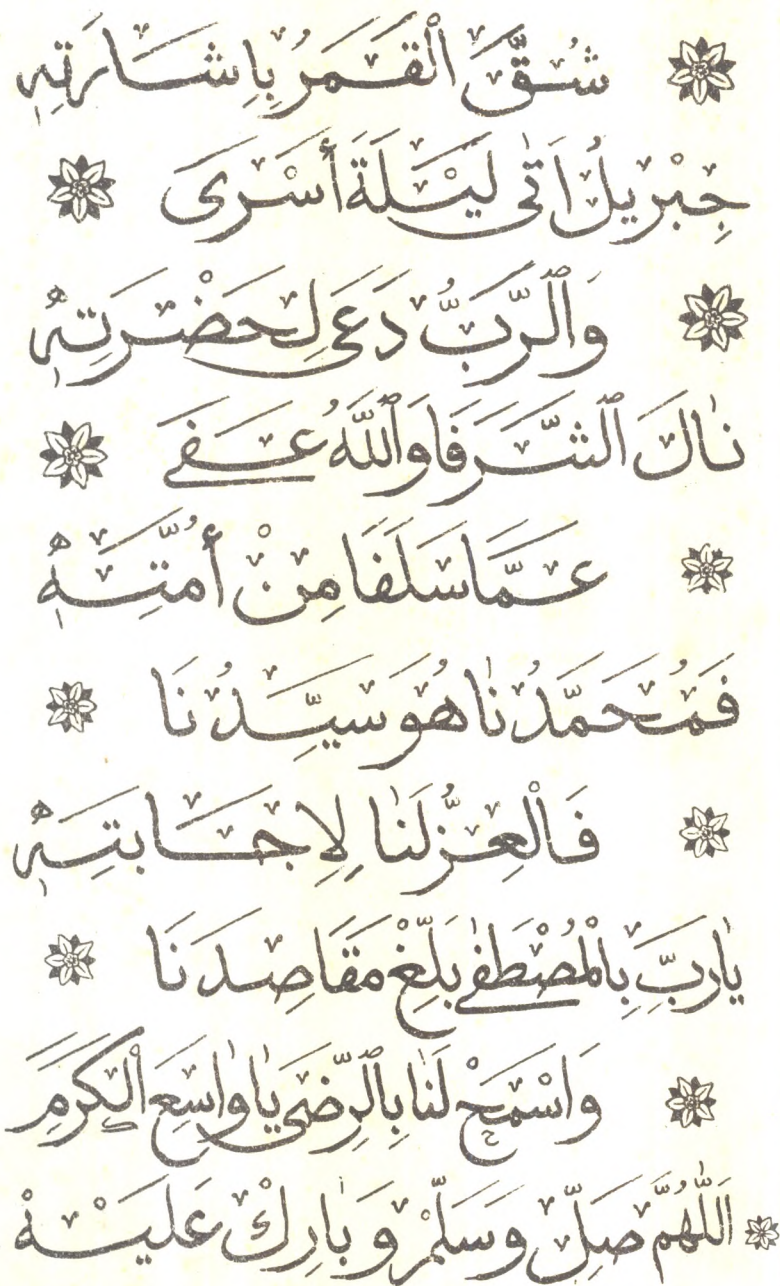 شُقَّ الْقَمَرُ بِاِشَارَتِهِ
جِبْرِيلُ اَتٰى لَيْلَةَ أَسْرَى
وَالرَّبُّ دَعَى لِحَضْرَتِهِ
نٰالَ الشَّرَفَا وَاللّٰهُ عَفٰى
عَمَّا سَلَفَا مِنْ أُمَّتِهِ
فَمُحَمَّدُنٰا هُوَ سَيِّدُنَا
فَالْعِزُّ لَنٰا لِاِجَابَتِهِ
يٰارَبِّ بِالْمُصْطَفٰى بَلِّغْ مَقَاصِدَنَا
وَاسْمَحْ لَنٰا بِالرِّضَى يٰا وٰاسِعَ الْكَرَمِ
اَللّٰهُمَّ صَلِّ وَسَلِّمْ وَبٰارِكْ عَلَيْهْ